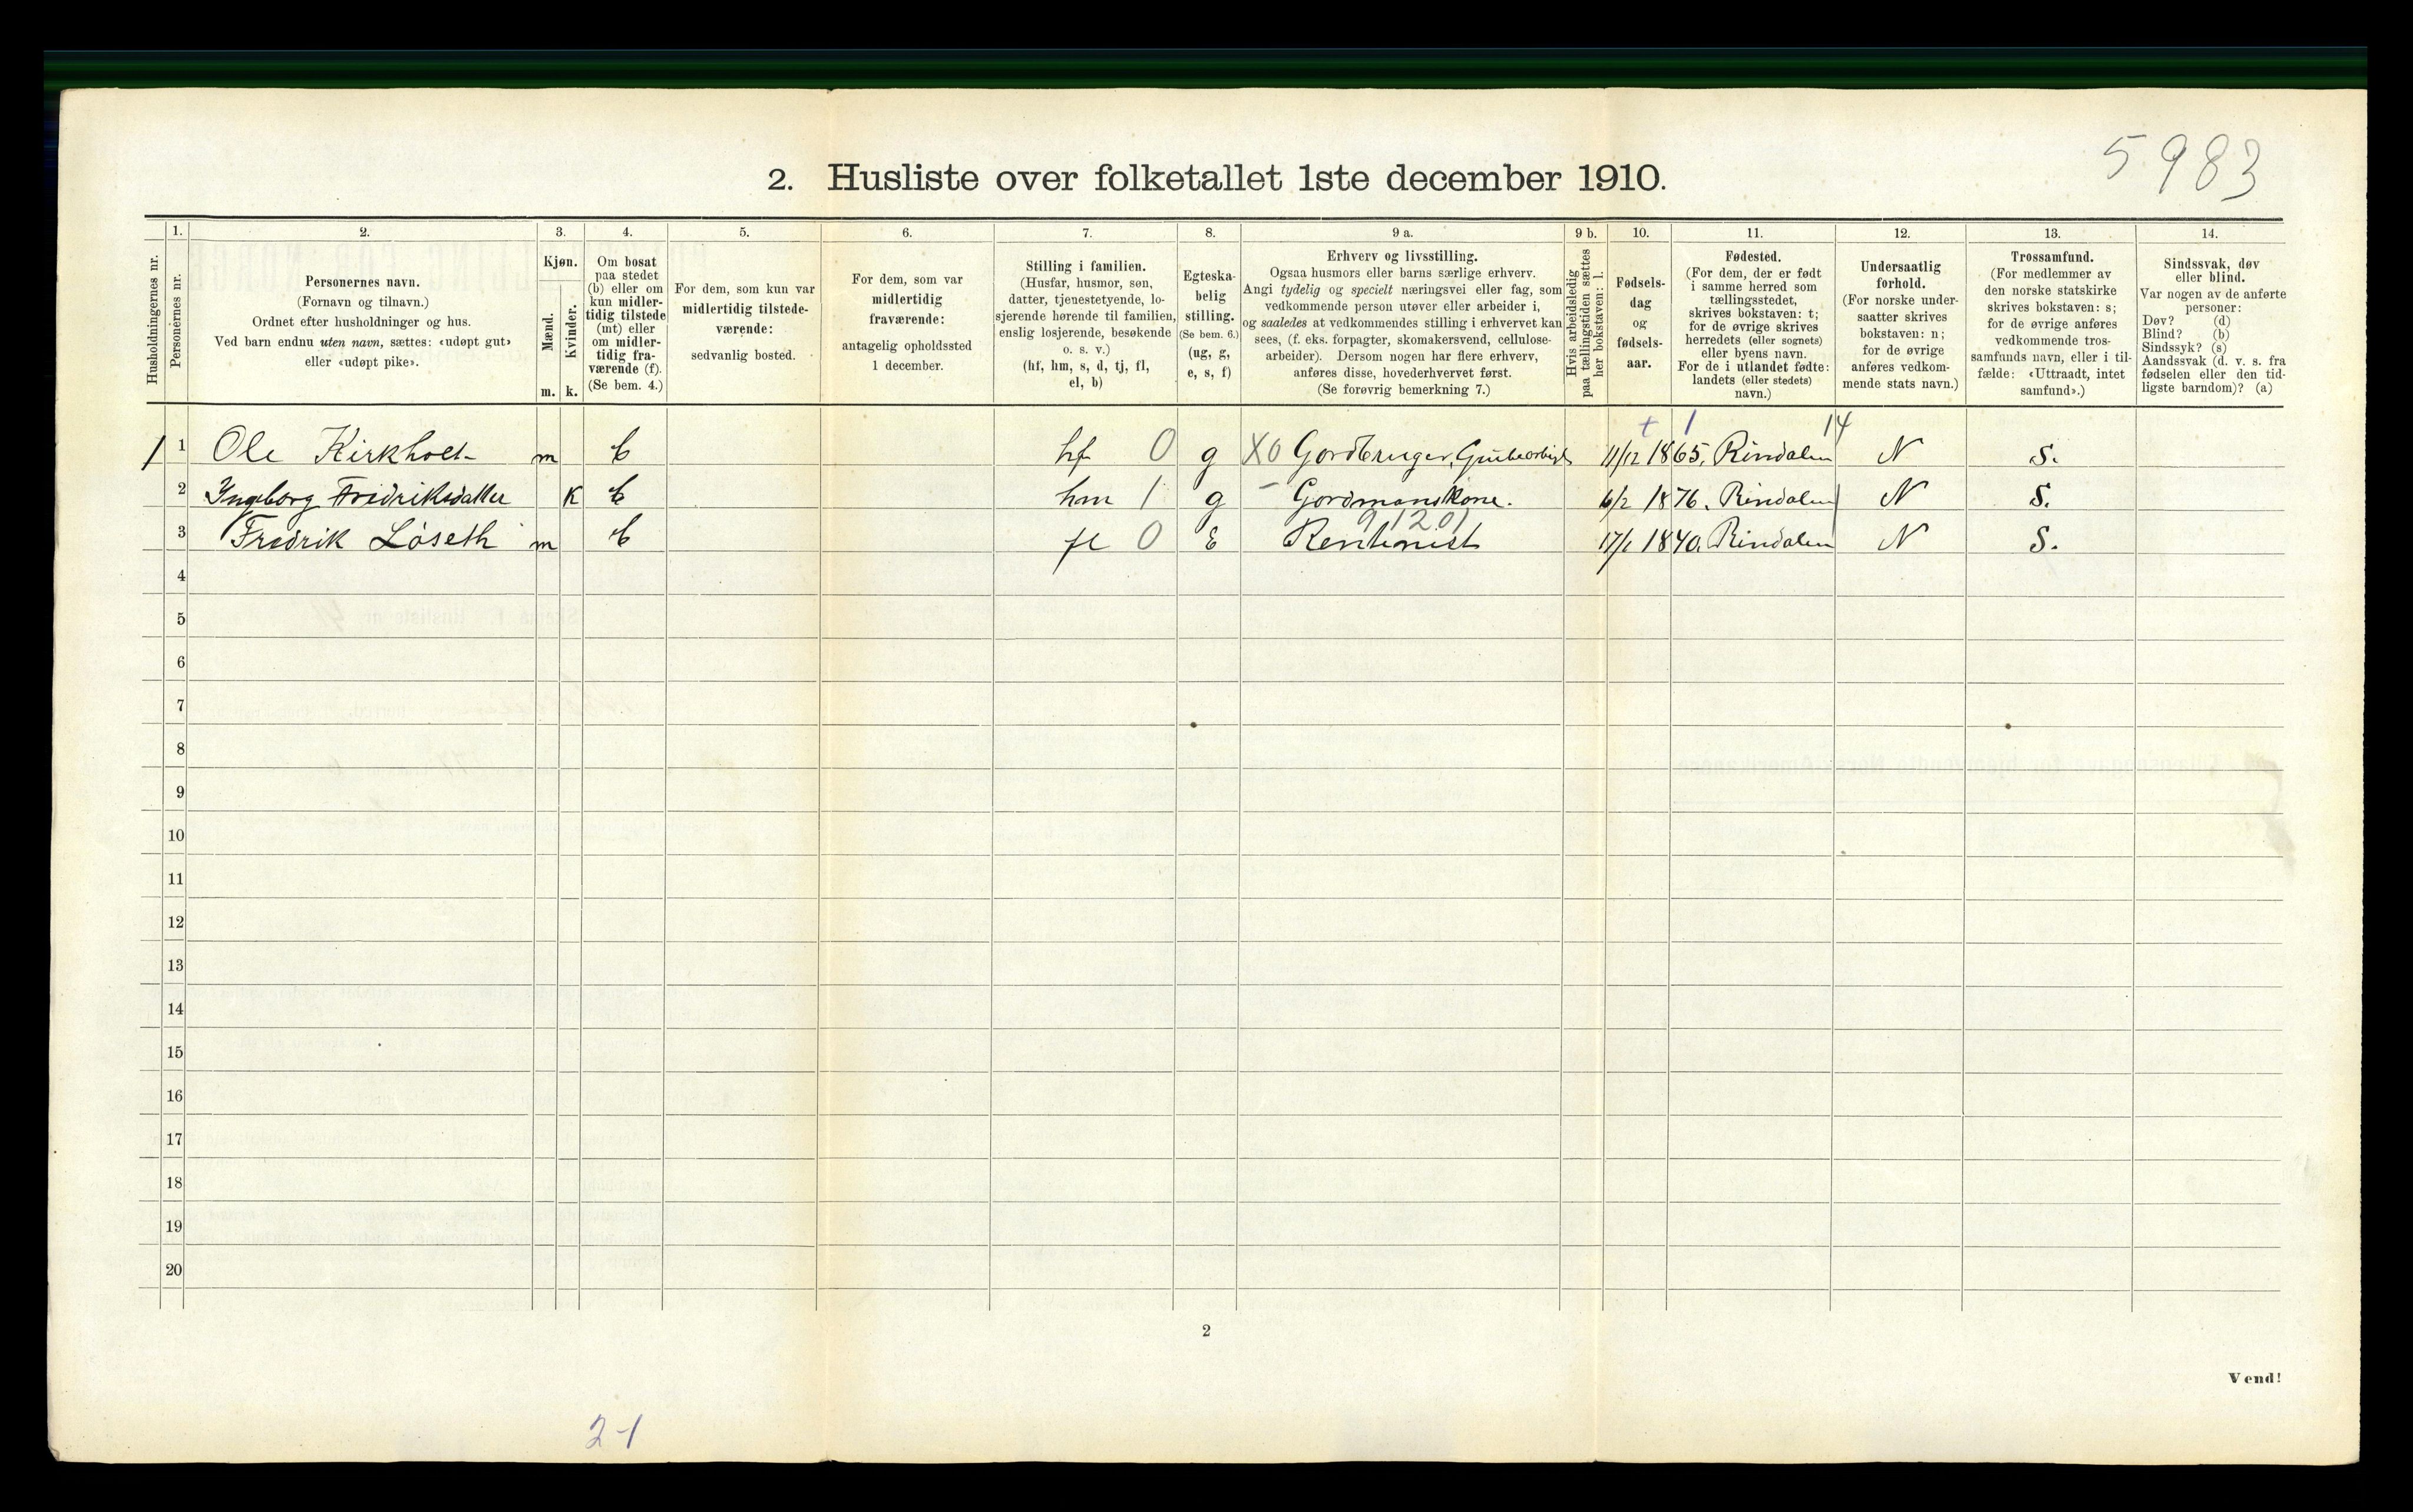 5983
2. Husliste over folketallet 1ste december 1910.
Husholdningernes nr.
1.
Personernes nr.
2.
Personernes navn.
(Fornavn og tilnavn.)
Ordnet efter husholdninger og hus.
Ved barn endnu uten navn, sættes: «udøpt gut»
eller «udøpt pike».
3.
Kjøn.
Mænd.
Kvinder.
m. k.
4.
Om bosat
paa stedet
(b) eller om
kun midler-
tidig tilstede
(mt) eller
om midler-
tidig fra-
værende (f).
(Se bem. 4.)
5.
For dem, som kun var
midlertidig tilstede-
værende:
sedvanlig bosted.
6.
For dem, som var
midlertidig
fraværende:
antagelig opholdssted
1 december.
7.
Stilling i familien.
(Husfar, husmor, søn,
datter, tjenestetyende, lo-
sjerende hørende til familien,
enslig losjerende, besøkende
o. s. v.)
(hf, hm, s, d, tj, fl,
el, b)
8.
Egteska-
belig
stilling.
(Se bem. 6.)
(ug, g,
e, s, f)
9 a.
Erhverv og livsstilling.
Ogsaa husmors eller barns særlige erhverv.
Angi tydelig og specielt næringsvei eller fag, som
vedkommende person utøver eller arbeider i,
og saaledes at vedkommendes stilling i erhvervet kan
sees, (f. eks. forpagter, skomakersvend, cellulose-
arbeider). Dersom nogen har flere erhverv,
anføres disse, hovederhvervet først.
(Se forøvrig bemerkning 7.)
9 b.
Hvis arbeidsledig
paa tællingstiden sættes
her bokstaven: l.
10.
Fødsels-
dag
og
fødsels-
aar.
11.
Fødested.
(For dem, der er født
i samme herred som
tællingsstedet,
skrives bokstaven: t;
for de øvrige skrives
herredets (eller sognets)
eller byens navn.
For de i utlandet fødte:
landets (eller stedets)
navn.)
12.
Undersaatlig
forhold.
(For norske under-
saatter skrives
bokstaven: n;
for de øvrige
anføres vedkom-
mende stats navn.)
13.
Trossamfund.
(For medlemmer av
den norske statskirke
skrives bokstaven: s;
for de øvrige anføres
vedkommende tros-
samfunds navn, eller i til-
fælde: «Uttraadt, intet
samfund».)
14.
Sindssvak, døv
eller blind.
Var nogen av de anførte
personer:
Døv? (d)
Blind? (b)
Sindssyk? (s)
Aandssvak (d. v. s. fra
fødselen eller den tid-
ligste barndom)? (a)
+ 1 14
1 1 Ole Kirkholt m b hf 0 g X0 Gordbruger, 11/12 1865. Rindalen N S.
2 Ingeborg Fredriksdatter K b hm 1 g - Gordmanskone. 6/2 1876. Rindalen N S.
91201
3 Fredrik Löseth m b fl 0 E Rentenist 17/1 1840. Rindalen N S.
4
5
6
7
8
9
10
11
12
13
14
15
16
17
18
19
20
2
Vend!
2-1